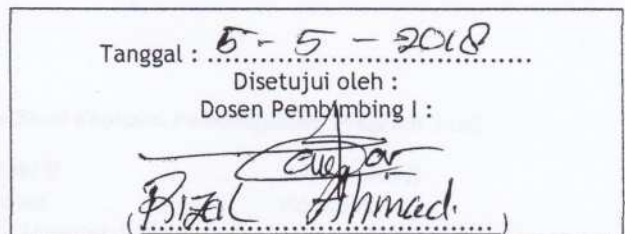 Tanggal : 5 - 5 - 2018
Disetujui oleh :
Dosen Pembimbing I :
(Rizal Ahmadi)